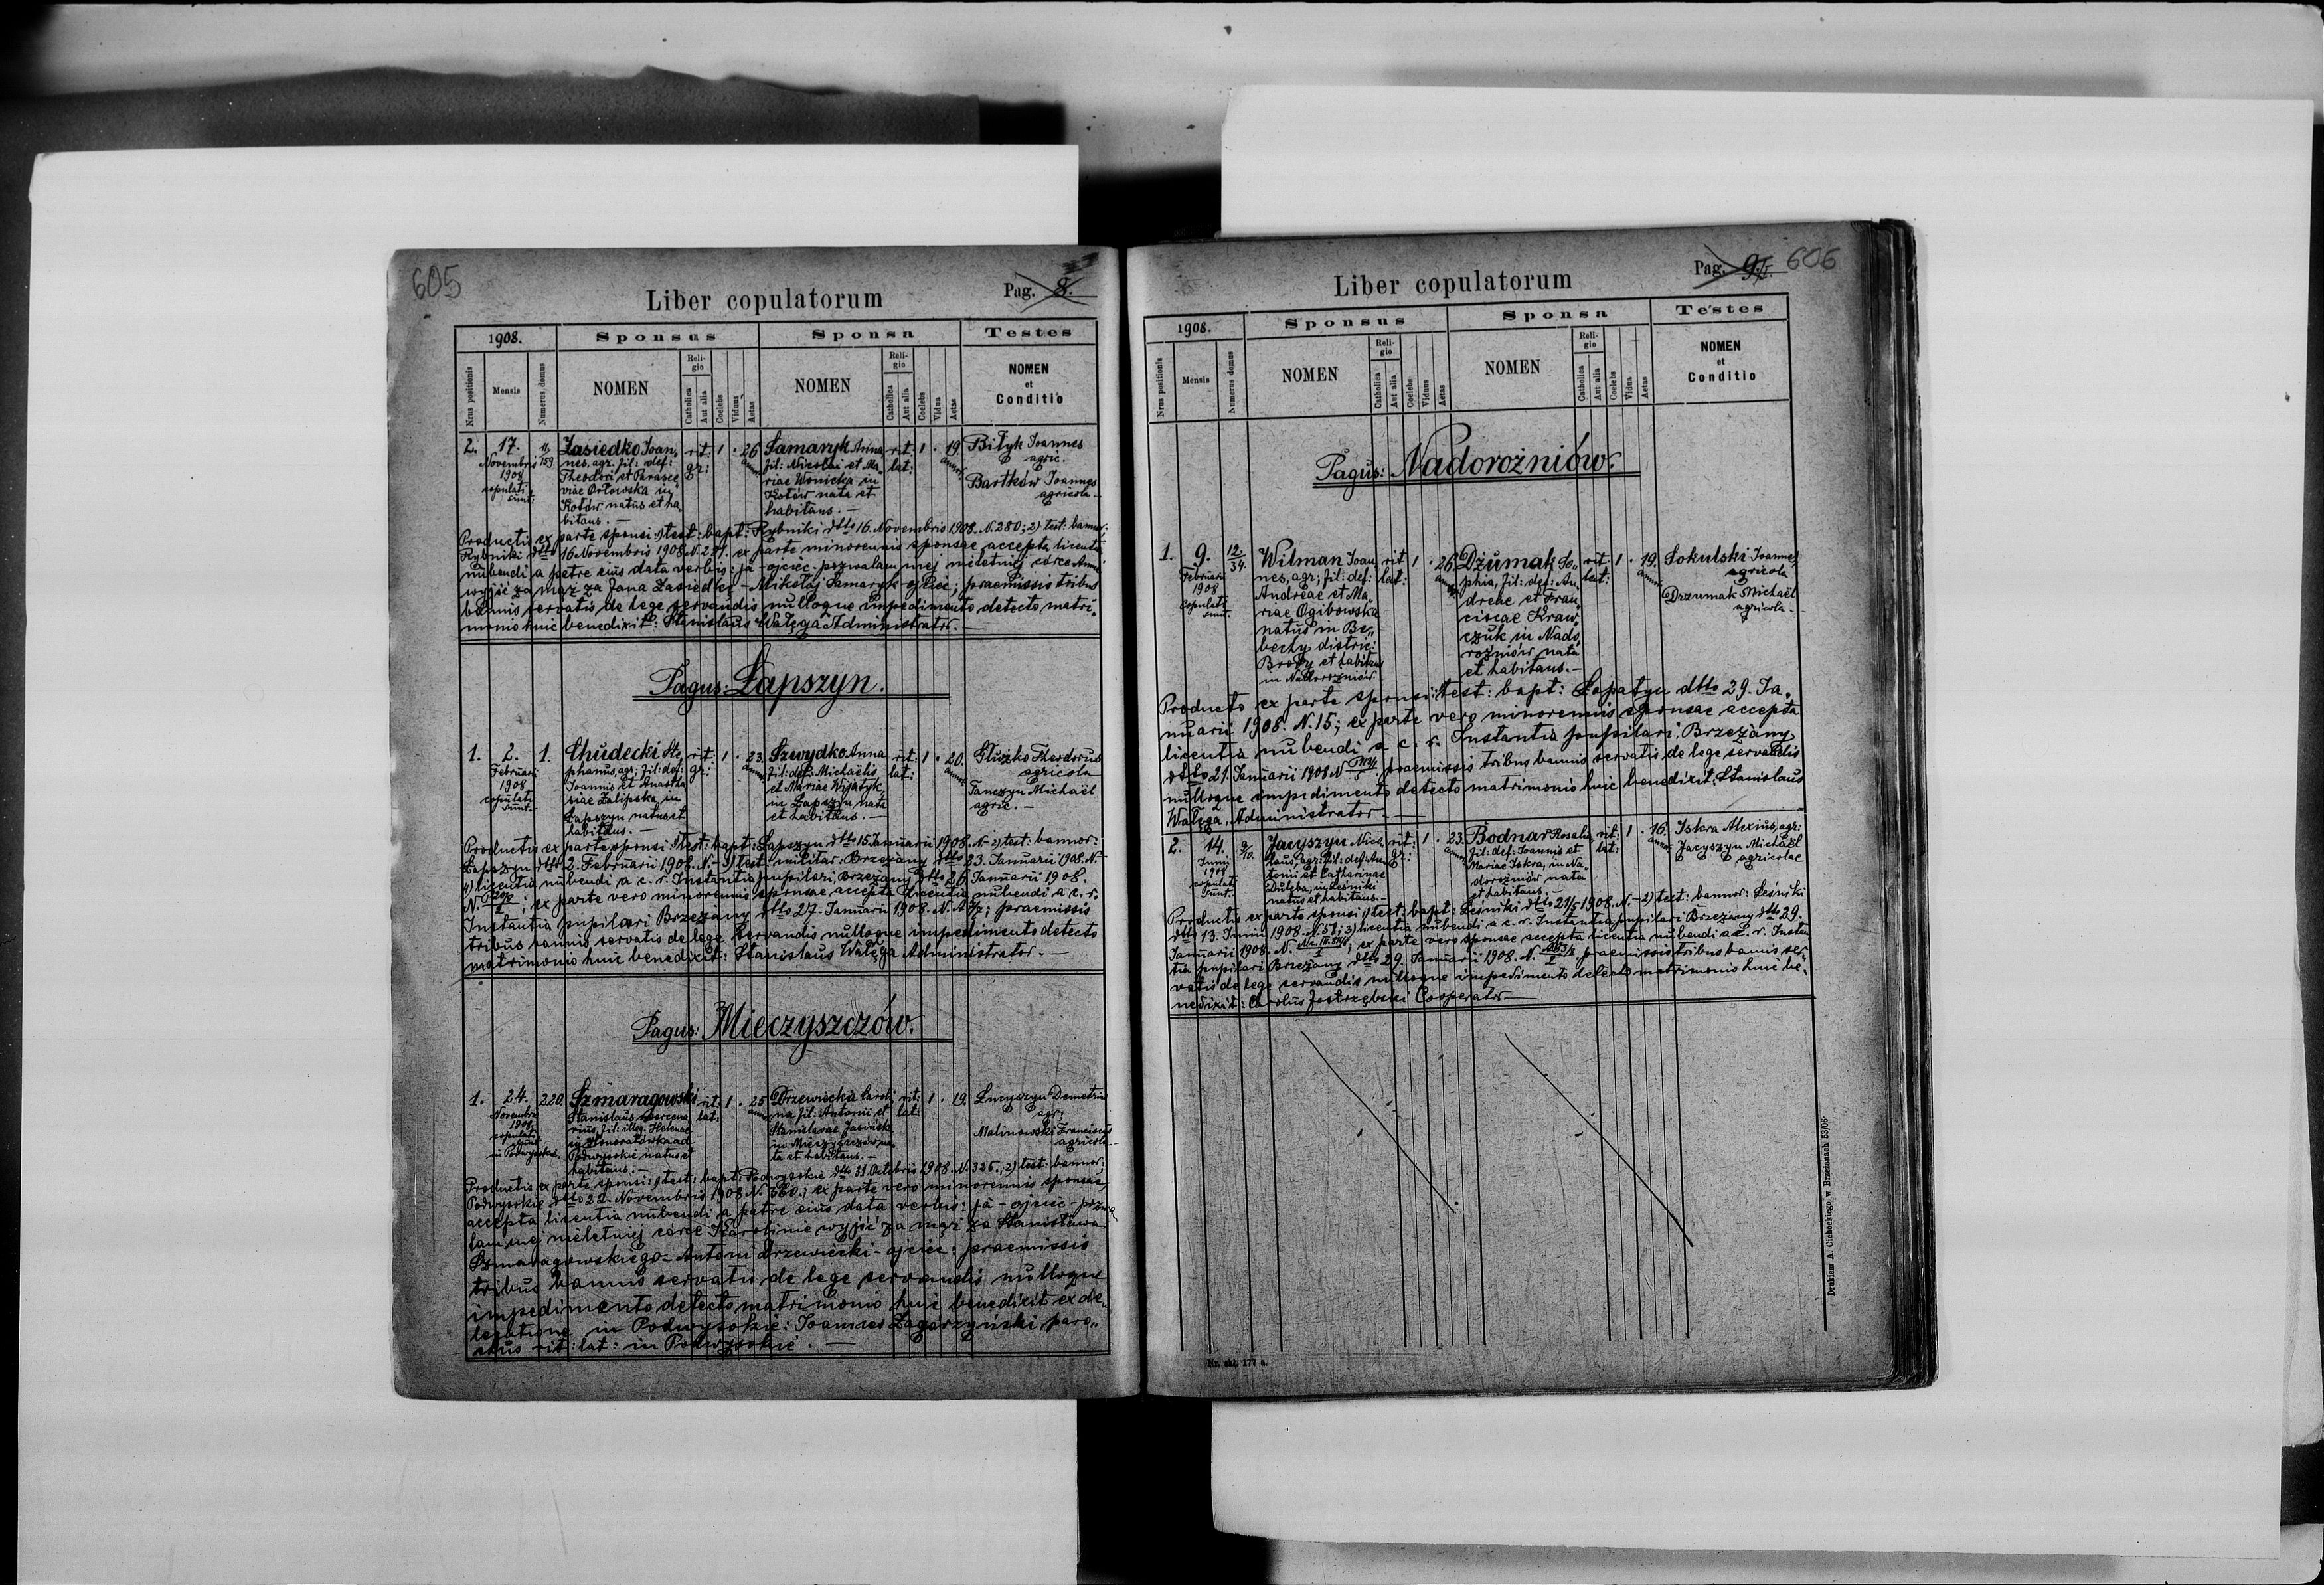 605
Liber copulatorum
Pag. 8.
1908.
Sponsus
Sponsa
Testes
Nrus positionis
Mensis
Numerus domus
NOMEN
Religio
Catholica
Aut alia
Coelebs
Viduus
Aetas
NOMEN
Religio
Catholica
Aut alia
Coelebs
Vidua
Aetas
NOMEN
et
Conditio
2.
17.
Novembris
1908
copulati
sunt.
11/159
Zasiedko Joan„
nes, agr. fil: def:
Theodori et Parasce„
viae Orłowska in
Kotów natus et ha„
bitans. —
rit:
gr:
1 · 26
annor.
Samaryk Anna
fil: Nicolai et Ma„
riae Wonicka in
Kotów nata et
habitans. —
rit:
lat:
1 · 19
annor.
Biłyk Joannes
agric.
Bartków Joannes
agricola —
Productis ex parte sponsi: 1) test: bapt: Rybniki dtto 16. Novembris 1908. N. 280; 2) test: bannor:
Rybniki dtto 16 Novembris 1908 N. 281. ex parte minorennis sponsae accepta licentia
nubendi a patre eius data verbis: ja - ojciec - pozwalam mej nieletniej córce Annie
wyjść za mąż za Jana Zasiedkę - Mikołaj Samaryk - ojciec; praemissis tribus
bannis servatis de lege servandis nulloque impedimento detecto matri„
monio huic benedixit: Stanislaus Wałęga Administrator. —
Pagus: Łapszyn.
1.
2.
Februarii
1908
copulati
sunt.
1.
Chudecki Ste„
phanus, agr; fil: def:
Joannis et Anasta„
siae Zalipska in
Łapszyn natus et
habitans. —
rit:
gr:
1 · 23
annor.
Szwydko Anna
fil: def: Michaëlis
et Mariae Wijatyk
in Łapszyn nata
et habitans. —
rit:
lat:
1 · 20.
annor.
Głuszko Theodorus
agricola
Tanczyn Michaël
agric. —
Productis ex parte sponsi: 1) test: bapt: Łapszyn dtto 15 Januarii 1908. N- 2) test: bannor:
Łapszyn dtto 2. Februarii 1908. N.- 3) test: militar: Brzeżany dtto 23. Januarii 1908. N-
4) licentia nubendi a c. r. Instantia pupilari Brzeżany dtto 26. Januarii 1908.
; ex parte vero minorennis sponsae accepta licentia nubendi a c. r.
Instantia pupilari Brzeżany dtto 27. Januarii 1908. N. ; praemissis
tribus bannis servatis de lege servandis nulloque impedimento detecto
matrimonio huic benedixit: Stanislaus Wałęga Administrator. —
Pagus: Mieczyszczów.
1.
24.
Novembris
1908
copulati
sunt
in Podwysokie.
220.
Szmaragowski
Stanislaus mercena„
rius, fil: illeg. Helenae
in Honoratówka ad
Podwysokie natus et
habitans. —
rit:
lat:
1 · 25
annor.
Drzewiecka Caroli„
na, fil: Antonii et
Stanislavae Jasińska
in Mieczyszczów na„
ta et habitans. —
rit:
lat:
1 · 19.
Łucyszyn Demetrius
agr;
Malinowski Franciscus
agricola —
Productis ex parte sponsi: 1) test: bapt: Podwysokie dtto 31. Octobris 1908. N. 325.; 2) test: bannor:
Podwysokie dtto 22. Novembris 1908 N. 360.; ex parte vero minorennis sponsae
accepta licentia nubendi a patre eius data verbis: ja - ojciec - pozwa„
lam mej nieletniej córce Karolinie wyjść za mąż za Stanisława
Szmaragowskiego - Antoni Drzewiecki - ojciec; praemissis
tribus bannis servatis de lege servandis nulloque
impedimento detecto matrimonio huic benedixit ex de„
legatione in Podwysokie: Joannes Zagórzyński, paro„
chus rit: lat: in Podwysokie. —
606
Liber copulatorum
Pag. 9.
1908.
Sponsus
Sponsa
Testes
Nrus positionis
Mensis
Numerus domus
NOMEN
Religio
Catholica
Aut alia
Coelebs
Viduus
Aetas
NOMEN
Religio
Catholica
Aut alia
Coelebs
Vidua
Aetas
NOMEN
et
Conditio
Pagus: Nadorożniów.
1.
9.
Februarii
1908
Copulati
sunt.
12./34.
Wilman Joan„
nes, agr; fil: def:
Andreae et Ma„
riae Ogibowska
natus in Be„
bechy, distric:
Brody et habitans
in Nadorożniów
rit:
lat:
1 · 26
annor.
Dżumak So„
phia, fil: def: An„
dreae et Fran„
ciscae Kraw„
czuk in Nado„
rożniów nata
et habitans. —
rit:
lat:
1 · 19.
annor.
Sokulski Joannes
agricola
Drzumak Michaël
agricola —
Producto ex parte sponsi: test: bapt: Łopatyn dtto 29. Ja„
nuarii 1908. N. 15; ex parte vero minorennis sponsae accepta
licentia nubendi a c. r. Instantia pupilari Brzeżany
dtto 21. Januarii 1908 N. praemissis tribus bannis servatis de lege servandis
nulloque impedimento detecto matrimonio huic benedixit: Stanislaus
Wałęga, Administrator. —
2.
14.
Junii
1908
copulati
sunt.
9/10.
Jacyszyn Nico„
laus, agr: fil: def: An„
tonii et Catharinae
Duleba, in Leśniki
natus et habitans. —
rit:
gr:
1 · 23.
annor.
Bodnar Rosalia
fil: def: Joannis et
Mariae Iskra, in Na„
dorożniów nata
et habitans. —
rit:
lat:
1 · 16.
annor.
Iskra Alexius, agr:
Jacyszyn Michaël
agricolae
Productis ex parte sponsi 1) test: bapt: Leśniki dtto 21/5 1908. N. - 2) test: bannor: Leśniki
dtto 13. Junii 1908. N. 58; 3) licentia nubendi a c. r. Instantia pupilari Brzeżany dtto 29.
Januarii 1908. N. ; ex parte vero sponsae accepta licentia nubendi a c. r. Instan„
tia pupilari Brzeżany dtto 29. Januarii 1908. N. praemissis tribus bannis ser„
vatis de lege servandis nulloque impedimento detecto matrimonio huic be„
nedixit: Carolus Jastrzębski Cooperator. —
Nr. skł. 177 a.
Drukiem A. Cichockiego w Brzeżanach 53/06